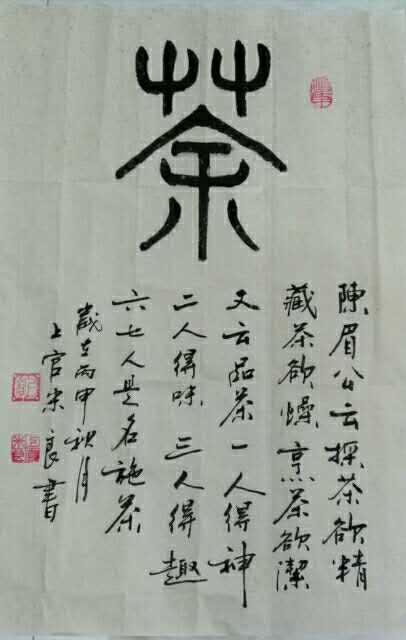 茶
陳眉公云採茶欲精
藏茶欲燥烹茶欲潔
又云品茶一人得神
二人得味三人得趣
六七人是名施茶
歲在丙申秋月
上官宋良書